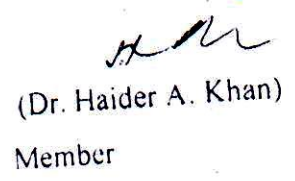 (Dr. Haider A. Khan)
Member